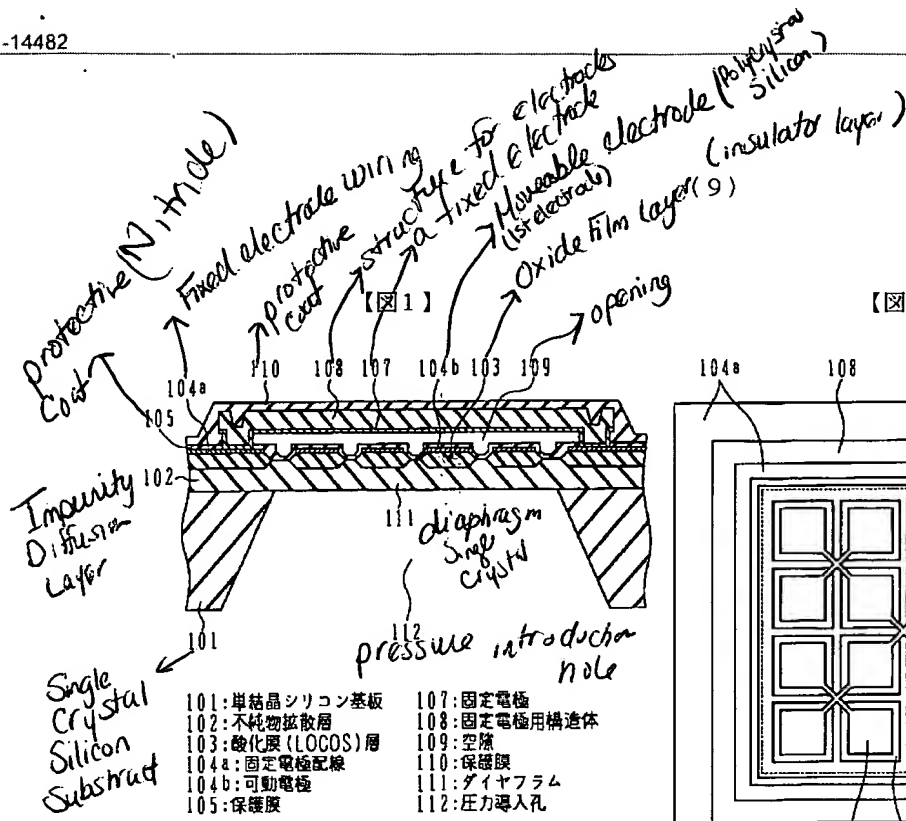 -14482
Protective (Nitride)
Coat
Fixed electrode wiring
protective
coat
structure for electrodes
a fixed electrode
Moveable electrode (Polycrystal
Silicon)
(1st electrode)
Oxide Film layer (9)
(insulator layer)
opening
【図1】
【図
104a
110
108
107
104b
103
109
104a
108
105
102
Impurity
Diffusion
Layer
111
diaphragm
single
crystal
101
112
pressure introduction
hole
Single
Crystal
Silicon
Substract
101:単結晶シリコン基板
102:不純物拡散層
103:酸化膜(LOCOS)層
104a:固定電極配線
104b:可動電極
105:保護膜
107:固定電極
108:固定電極用構造体
109:空隙
110:保護膜
111:ダイヤフラム
112:圧力導入孔